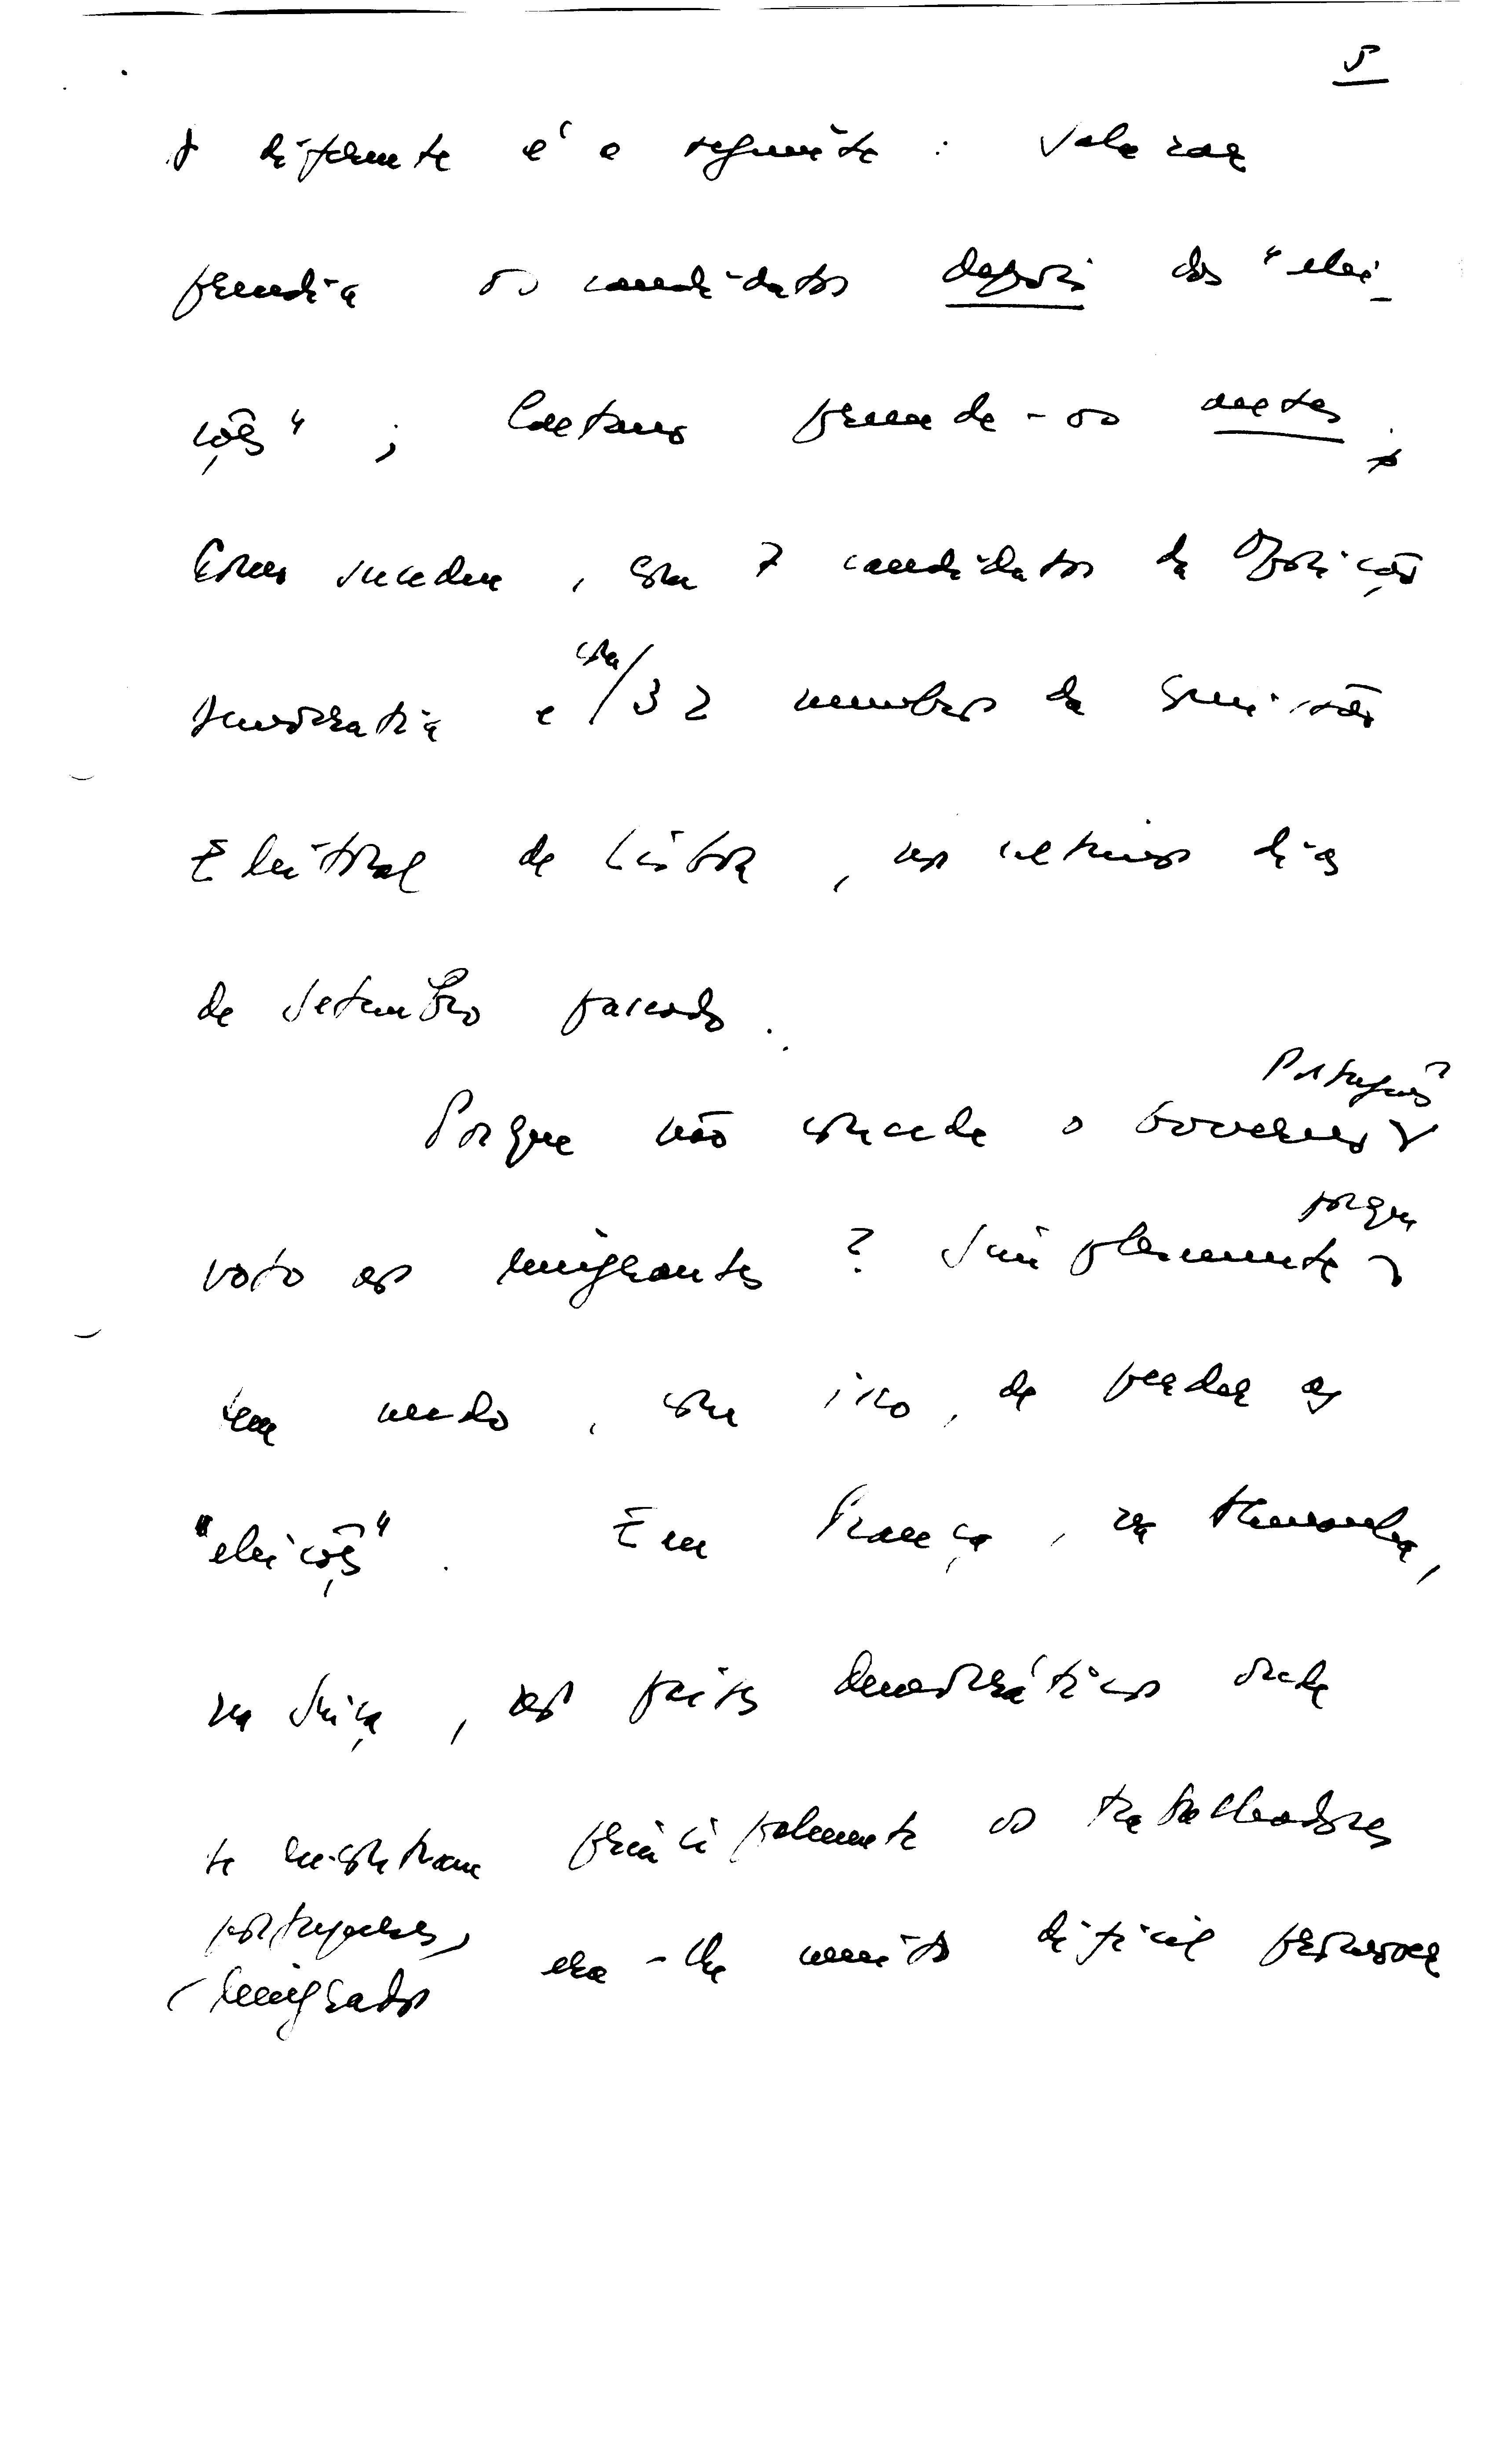 5
diferente é o seguinte : Salazar
prendia os candidatos depois das "elei-
ções" ; Caetano prende-os antes
Como sucedeu , com 7 candidatos da Oposição
democrática e com 32 membros da Comissão
Eleitoral de Lisboa , nos ultimos dias
de Setembro passado .
Português
Porque não concede o Governo
porque
voto aos emigrantes ? Simplesmente
tem medo , com isso , de perder as
"eleições" . Em França , na Alemanha,
na Suiça , nos paises democráticos onde
se encontram principalmente os trabalhadores
portugueses,
emigrados era-lhe muito dificil promover